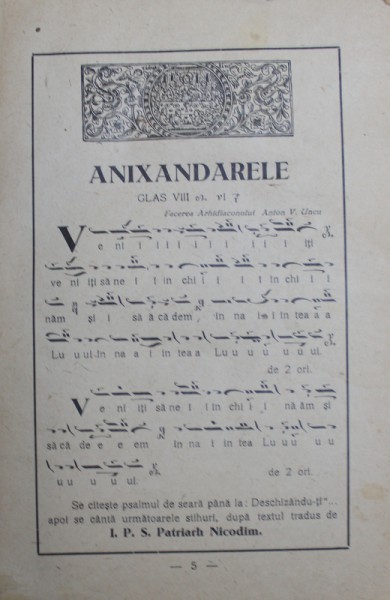 ANIXANDARELE
GLAS VIII
Facerea Arhidiaconului Anton V. Uncu
Ve ni i i i i i i i i i iți
ve ni iți să ne i i în chi i i i în chi i i
năm și i să ă că dem în na i în tea a a
Lu u ui. În na a i în tea a Lu u u u u u ui.
de 2 ori.
Ve ni iți să ne i i în chi i i nă ăm și
să că de e e em în na i în tea Lu u u u u
u u u u u ui.
de 2 ori.
Se citește psalmul de seară până la: Deschizându-ți"...
apoi se cântă următoarele stihuri, după textul tradus de
I. P. S. Patriarh Nicodim.
— 5 —